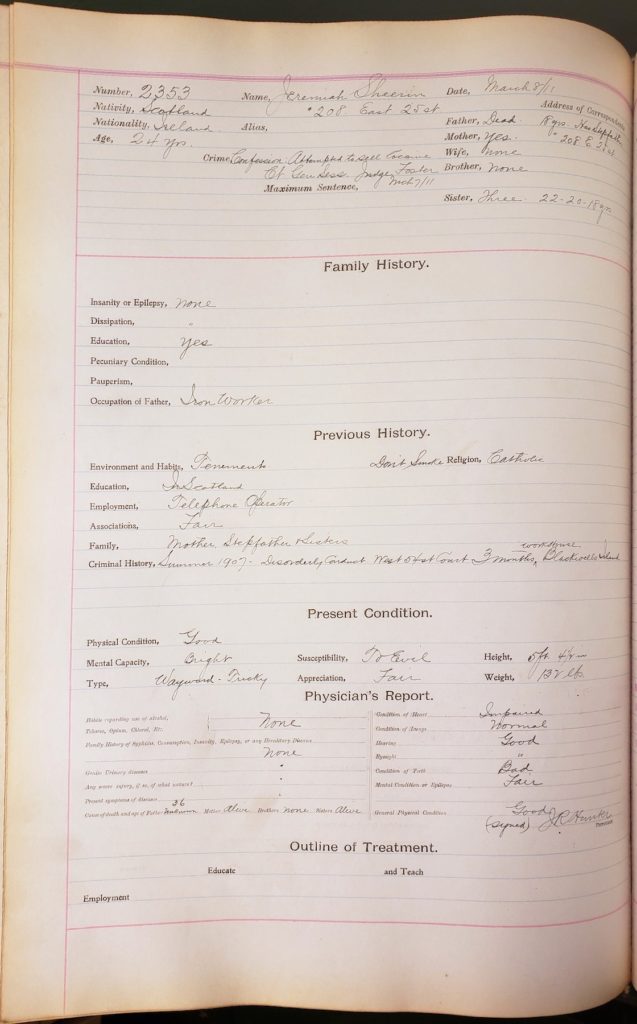 Number, 2353 Name, Jeremiah Sheerin Date, March 8/11
Nativity, Scotland " 208 East 25 st Address of Correspondents
Nationality, Ireland Alias, Father, Dead. 18 yrs.
Age, 24 yrs. Mother, Yes. " 208 E. 25 st
Crime, Confession Attempted to sell Cocaine Wife, none
Ct Gen Sess. Judge Foster Brother, None
Maximum Sentence, Mch 7/11
Sister, Three 22-20-18 yrs.
Family History.
Insanity or Epilepsy, none
Dissipation, "
Education, Yes
Pecuniary Condition,
Pauperism,
Occupation of Father, Iron Worker
Previous History.
Environment and Habits, Tenement Don't Smoke Religion, Catholic
Education, In Scotland
Employment, Telephone Operator
Associations, Fair
Family, Mother Stepfather & Sisters
Workhouse
Criminal History, Summer 1907 - Disorderly Conduct West 54st Court 3 months, Blackwells Island
Present Condition.
Physical Condition, Good
Mental Capacity, Bright Susceptibility, To Evil Height, 5 ft. 4½ in
Type, Wayward - Tricky Appreciation, Fair Weight, 132 lbs.
Physician's Report.
Habits regarding use of alcohol, Condition of Heart Impaired
Tobacco, Opium, Chloral, Etc. None Condition of Lungs Normal
Family History of Syphilis, Consumption, Insanity, Epilepsy, or any Hereditary Disease Hearing Good
None Eyesight "
Genito Urinary diseases " Condition of Teeth Bad
Any severe injury, if so, of what nature? " Mental Condition or Epilepsy Fair
Present symptoms of disease "
36
Cause of death and age of Father Mother Alive Brothers None Sisters Alive General Physical Condition Good
(Signed)
Outline of Treatment.
Educate and Teach
Employment